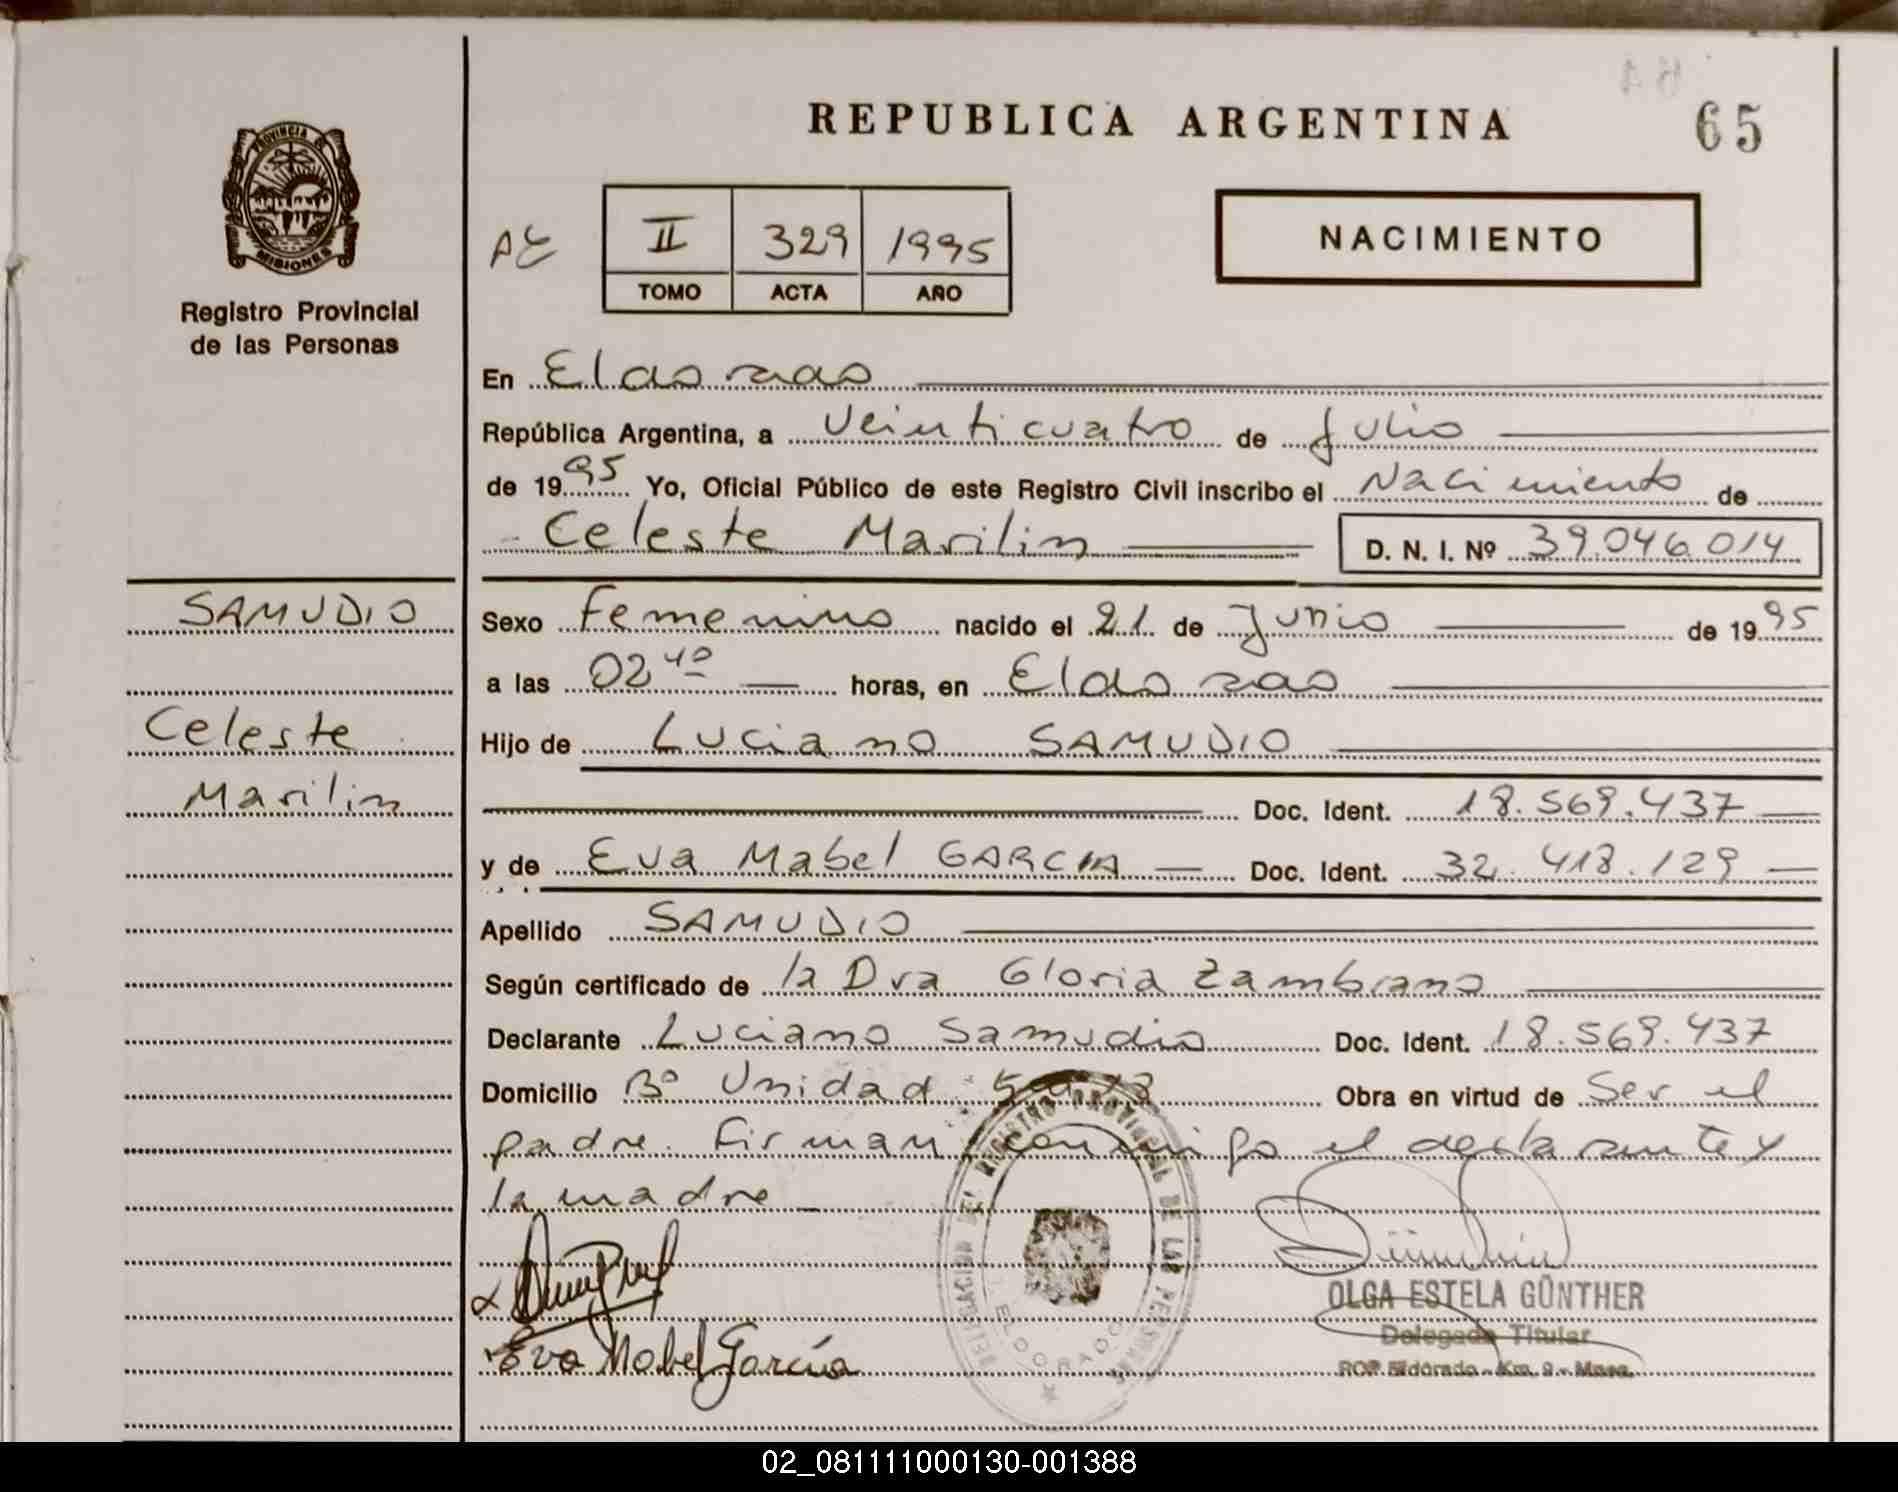 65
REPUBLICA ARGENTINA
PROVINCIA D
MISIONES
Registro Provincial
de las Personas
NACIMIENTO
II 329 1995
TOMO ACTA AÑO
En Eldorado
República Argentina, a Veinticuatro de Julio
de 1995 Yo, Oficial Público de este Registro Civil inscribo el Nacimiento de
Celeste Marilin D. N. I. Nº 39.046.014
SAMUDIO
Celeste
Marilin
Sexo Femenino nacido el 21 de Junio de 1995
a las 02 40 horas, en Eldorado
Hijo de Luciano SAMUDIO
Doc. Ident. 18.569.437
y de Eva Mabel GARCIA Doc. Ident. 32.418.129
Apellido SAMUDIO
Según certificado de la Dra Gloria Zambrano
Declarante Luciano Samudio Doc. Ident. 18.569.437
Domicilio Bº Unidad Obra en virtud de Ser el
padre. Firman conmigo el declarante y
la madre
DELEGACION DEL REGISTRO PROVINCIAL DE LAS PERSONAS
ELDORADO
OLGA ESTELA GÜNTHER
Delegada Titular
RCP Eldorado - Km. 9 - Mnes.
Eva Mabel García
02_081111000130-001388